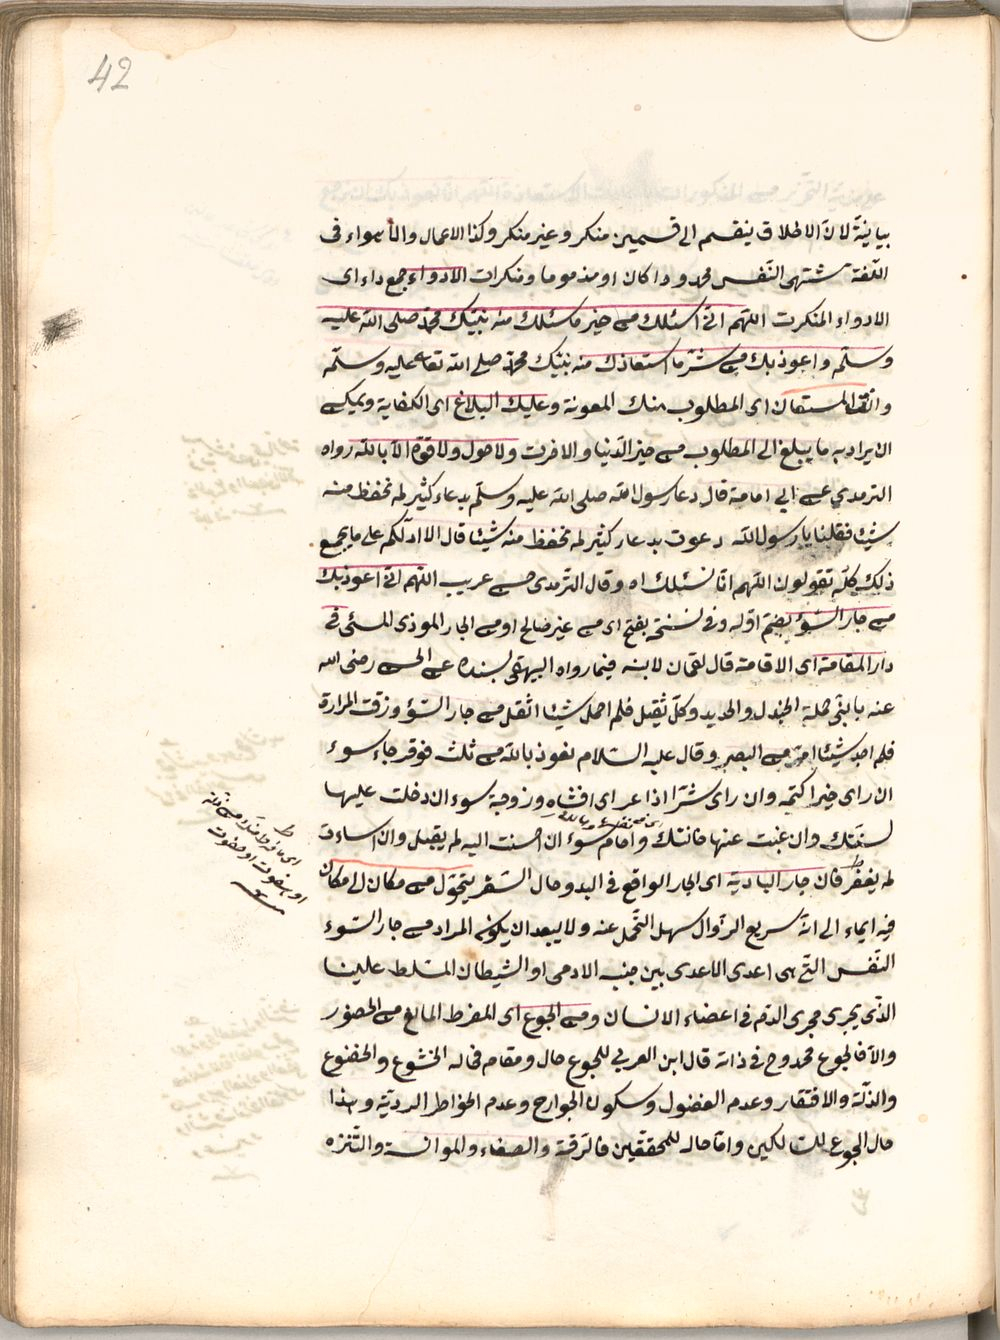 42
بيانية لان الاطلاق ينقسم الى قسمين منكر وغير منكر وكذا الاعمال والاهواء فى
اللغة تشتهى النفس محمودا كان او مذموما ومنكرات الادواء جمع داء اى
الادواء المنكرت اللهم انى اسئلك من خير ما سئلك منه نبيك محمد صلى الله عليه
وسلم واعوذ بك من شر ما استعاذك منه نبيك محمد صلى الله تعا عليه وسلم
وانت المستعان اى المطلوب منك المعونة وعليك البلاغ اى الكفاية ويمكن
ان يراد به ما يبلغ الى المطلوب من خير الدنيا والاخرت ولا حول ولا قوة الا بالله رواه
الترمدي عن ابي امامة قال دعا رسول الله صلى الله عليه وسلم بدعاء كثير لم نحفظ منه
شيئا فقلنا يا رسول الله دعوت بدعاء كثير لم نحفظ منه شيئا قال الا ادلكم على ما يجمع
ذلك كله تقولون اللهم انا نسئلك اه وقال الترمدى حسن غريب اللهم انى اعوذ بك
من جار السوء بضم اوله وفى نسخة بفتح اى من غير صالح او من الجار الموذى المسئى فى
دار المقامة اى الاقامة قال لقمان لابنه فيما رواه البيهقى بسنده عن الحسن رضى الله
عنه يا بنى حملت الجندل والحديد وكل ثقيل فلم احمل شيئا اثقل من جار السوء وزقت المرارة
فلم اجد شيئا امر من البصبر وقال عليه السلام نعوذ بالله من ثلث فوقر جار سوء
ان راى خيرا كتمه وان راى شرا اذاعه اى افشاه وزوجة سوء ان دخلت عليها
لسنتك وان غبت عنها خانتك وامام سوء ان احسنت اليه لم يقبل وان اساءت
لم يغفر فان جار البادية اى الجار الواقع فى البدو حال السفر يتحول من مكان الى مكان
فيه ايماء الى انه سريع الزوال سهل التحمل عنه ولا يبعد ان يكون المراد من جار السوء
النفس التى هى اعدى الاعدى بين جنب الادمى او الشيطان المسلط علينا
الذى يجرى مجرى الدم فى اعضاء الانسان ومن الجوع اى المفرط المالغ من الحضور
والا فالجوع محمدوح فى ذاته قال ابن العربي للجوع حال ومقام فحاله الخشوع والخضوع
والذلة والافتقار وعدم الفضول وسكون الجوارح وعدم الخواطر الردية وهذا
حال الجوع للسالكين واما حاله للمحققين فالرقة والصفاء والموانسة والتنزه